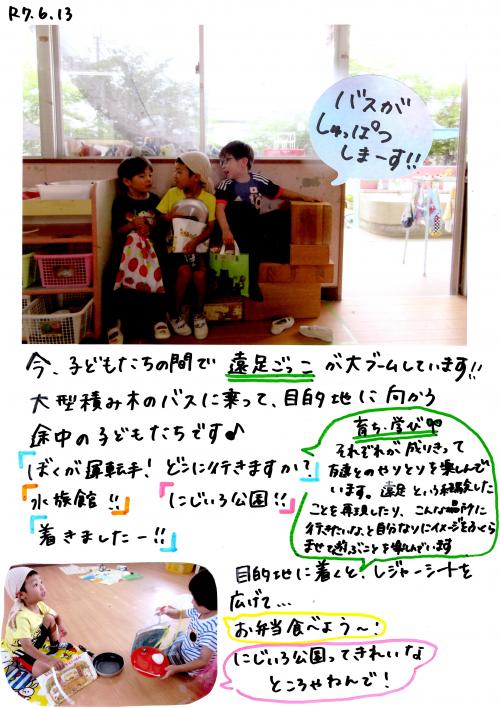 R7.6.13
バスが
しゅっぱつ
しまーす!!
今、子どもたちの間で 遠足ごっこ が大ブームしています!!
大型積み木のバスに乗って、目的地に向かう
途中の子どもたちです♪
「ぼくが運転手!どこに行きますか?」
「水族館!!」 「にじいろ公園!!」
「着きましたー!!」
育ち・学び
それぞれが成りきって
友達とのやりとりを楽しんで
います。遠足という経験した
ことを再現したり、こんな場所に
行きたいな、と自分なりにイメージをふくら
ませて遊ぶことを楽しんでいます
目的地に着くと、レジャーシートを
広げて…
お弁当食べよう〜!
にじいろ公園ってきれいな
ところやねんで!